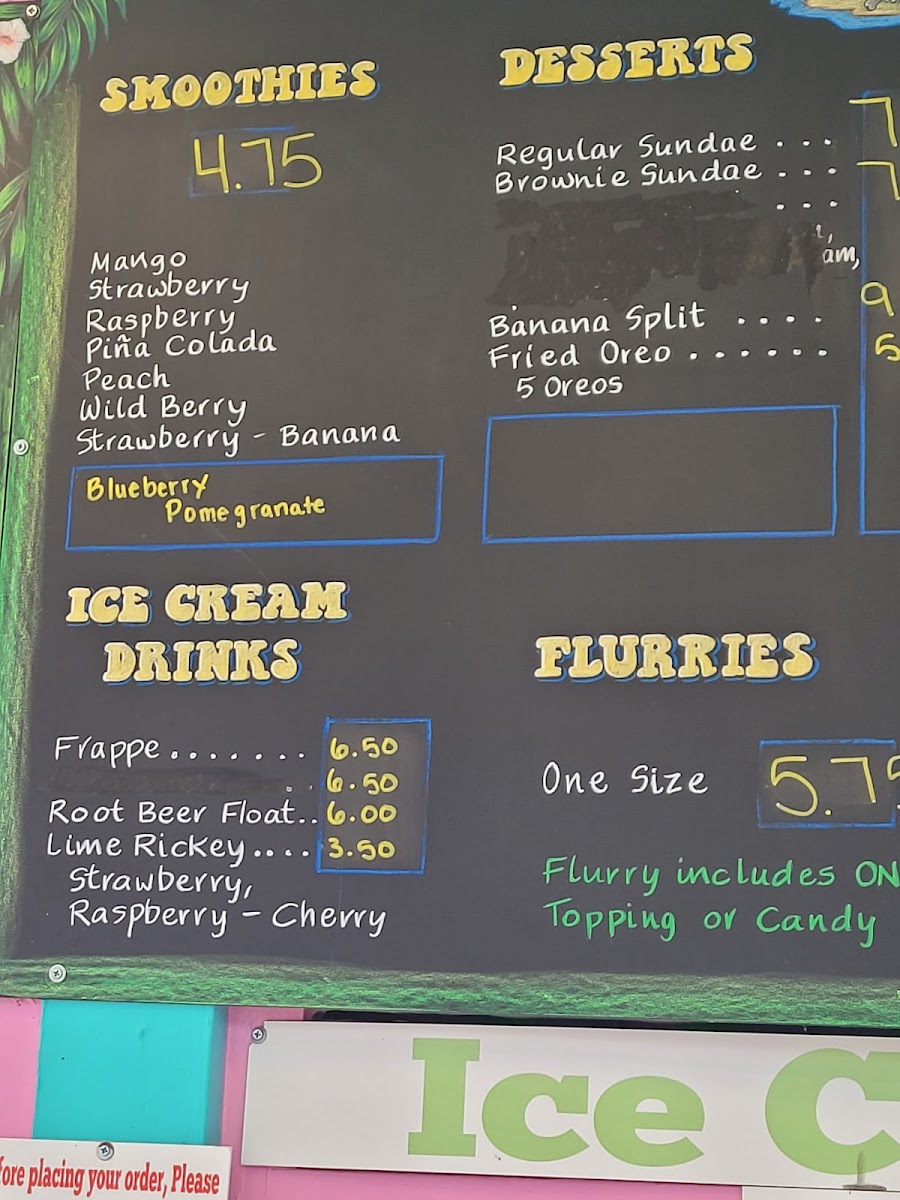 SMOOTHIES
4.75
Mango
Strawberry
Raspberry
Piña Colada
Peach
Wild Berry
Strawberry - Banana
Blueberry
Pomegranate
ICE CREAM
DRINKS
Frappe....... 6.50
6.50
Root Beer Float.. 6.00
Lime Rickey.... 3.50
Strawberry,
Raspberry - Cherry
DESSERTS
Regular Sundae ... 7
Brownie Sundae ... 7
...
am,
Banana Split .... 9
Fried Oreo ...... 5
5 Oreos
FLURRIES
One Size 5.75
Flurry includes ON
Topping or Candy
Ice C
fore placing your order, Please